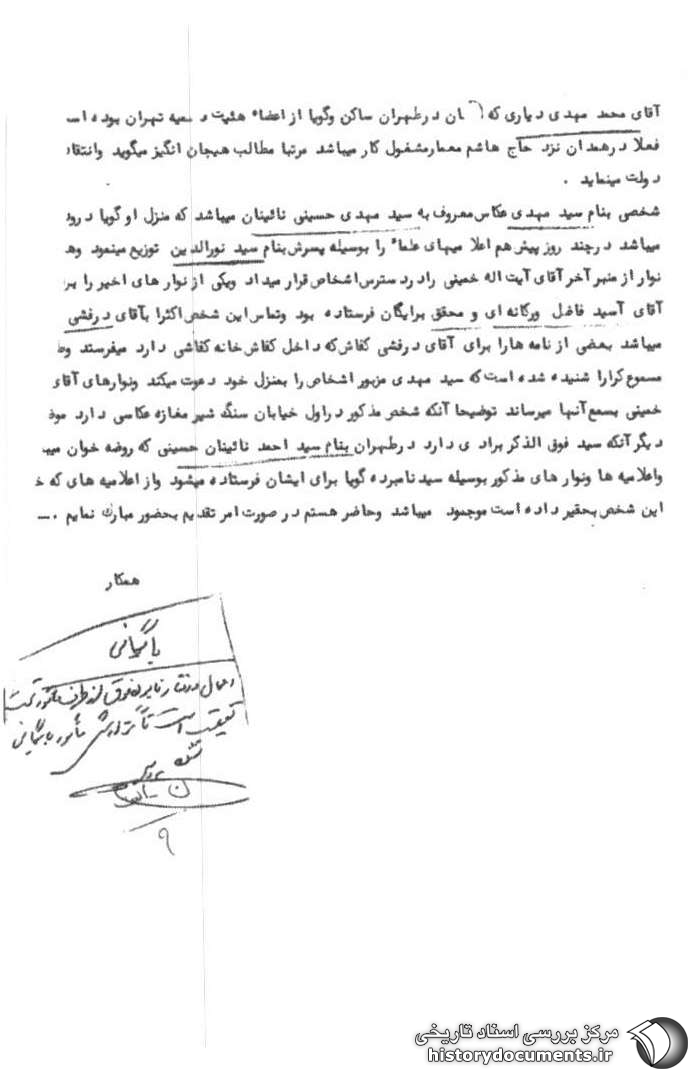 آقای محمد مهدی دیاری که ان در طهران ساکن وگویا از اعضاء هئیت د معیه تهران بوده اس
فعلا در همدان نزد حاج هاشم معمار مشغول کار میباشد مرتبا مطالب هیجان انگیز میگوید وانتقاد
دولت مینماید .
شخصی بنام سید مهدی عکاس معروف به سید مهدی حسینی نائینان میباشد که منزل او گویا در رود
میباشد در چند روز پیش هم اعلا میهای علماء را بوسیله پسرش بنام سید نورالدین توزیع مینمود وهـ
نوار از منبر آخر آقای آیت اله خمینی را در دسترس اشخاص قرار میداد ویکی از نوار های اخیر را بر
آقای آسید فاضل ورکانه ای و محقق برایگان فرستاده بود وتماس این شخص اکثرا بآقای درفشی
میباشد بعضی از نامه ها را برای آقای درفشی کفاش که داخل کفاش خانه کفاشی دارد میفرستد وط
مسموع کرارا شنیده شده است که سید مهدی مزبور اشخاص را بمنزل خود دعوت میکند ونوارهای آقای
خمینی بسمع آنها میرساند توضیحا آنکه شخص مذکور در اول خیابان سنگ شیر مغازه عکاسی دارد موضـ
دیگر آنکه سید فوق الذکر برادری دارد در طهران بنام سید احمد نائینان حسینی که روضه خوان میبـ
واعلامیه ها ونوار های مذکور بوسیله سید نامبرده گویا برای ایشان فرستاده میشود واز اعلامیه های که خـ
این شخص بحقیر داده است موجود میباشد وحاضر هستم در صورت امر تقدیم بحضور مبارک نمایم .ــ
همکار
بایگانی
اعمال و رفتار نامبرده فوق از طرف مامور تحت
تعقیب است
مأمور بایگانی
۹
مرکز بررسی اسناد تاریخی
historydocuments.ir